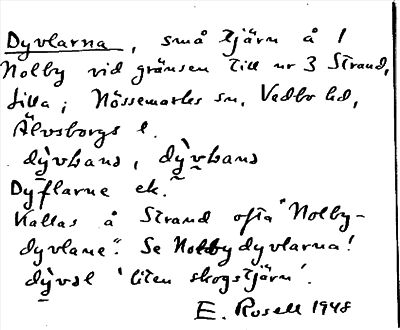 Dyvlarna, små tjärn å 1
Nolby vid gränsen till nr 3 Strand,
Lilla; Nössemarks sn, Vedbo hd,
Älvsborgs l.
dỳvḷana, dỳvḷana
Dyflarne ek.
Kallas å Strand ofta "Nolby-
dyvlane". Se Nolbydyvlarna!
dỳvəl 'liten skogstjärn'.
E. Rosell 1948